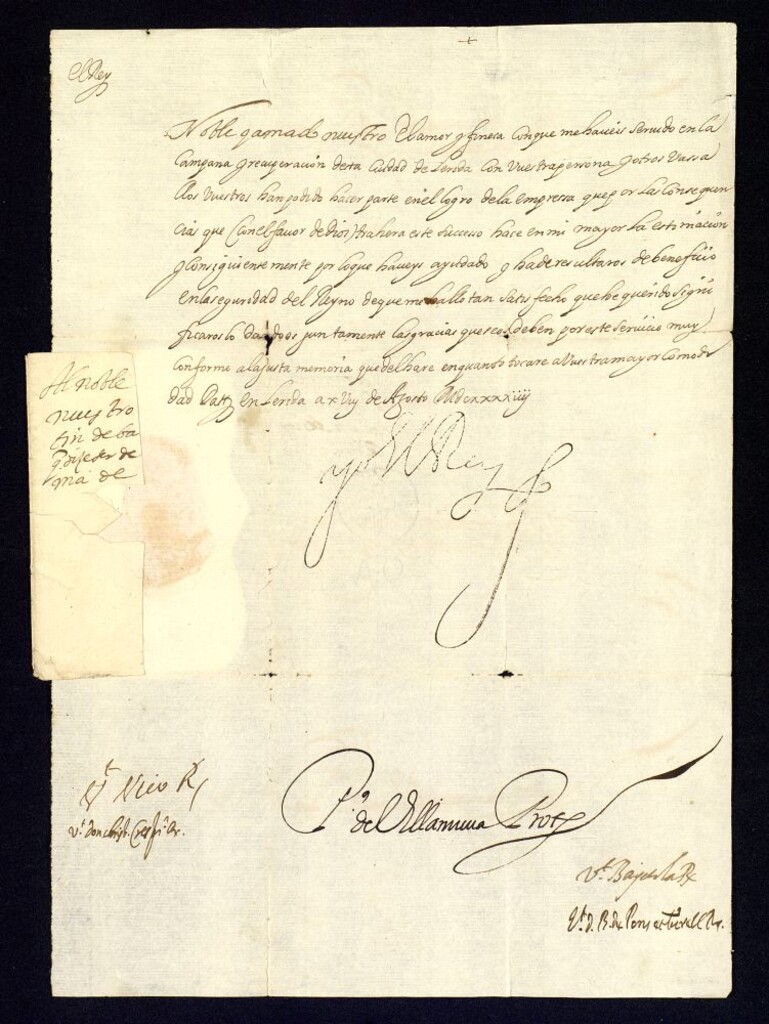 El Rey
Noble y amado nuestro El amor y fineca Con que me haueis seruido en la
Campana y recuperaçion desta Ciudad de Lerida con Vuestra persona y otros Vassa
llos Vuestros han podido hacer parte en el logro de la empressa que por las Consequen
cias que (con el fauor de Dios) trahera este successo hace en mi mayor la estimaçion
y Consiguiente mente por lo que haueys ayudado y ha de resultaros de benefiçio
en la seguridad del Reyno de que me hallo tan satisfecho que he querido signi
ficaroslo dandoos juntamente las gracias que se os deben por este seruicio muy
Conforme a la justa memoria que del hare en quando tocare a Vuestra mayor Comodi
dad Datt en Lerida a xVij de Agosto MdCxxxxiiij
Al noble
nuestro
tin de ba
ma de
yo El Rey
Vt Nico R
Vt Don Crisph. Crespi R.
Po del Villanueua Prots
Vt Bayetola R
Vt. D. R. de Pons et Turell R.